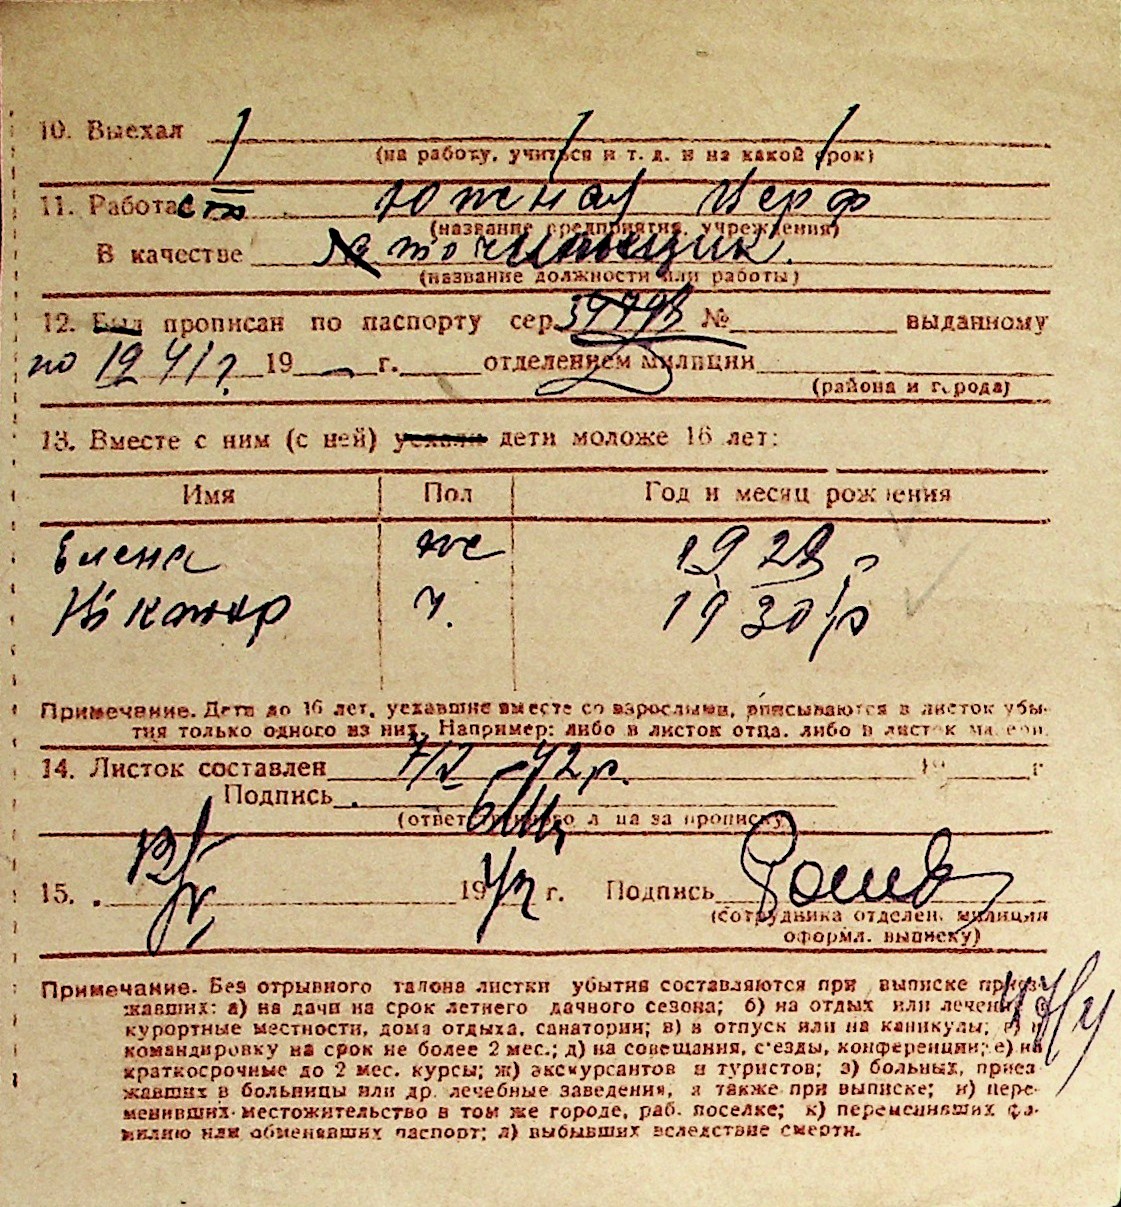 10. Выехал
(на работу, учиться и т. д. и на какой срок)
11. Работает Южная Верф
(название предприятия, учреждения)
В качестве точильщик.
(название должности или работы)
12. Был прописан по паспорту сер. № выданному
по 1941 г. 19 г. отделением милиции
(района и города)
13. Вместе с ним (с ней) уехали дети моложе 16 лет:
Имя Пол Год и месяц рождения
Елена ж 1928 р
Нікатор ч. 1930 р
Примечание. Дети до 16 лет, уехавшие вместе со взрослыми, вписываются в листок убы-
тия только одного из них. Например: либо в листок отца, либо в листок матери.
14. Листок составлен 7/X 42 р. 19 г
Подпись
(ответственного лица за прописку)
15. 1942 г. Подпись
(сотрудника отделен. милиции
оформл. выписку)
Примечание. Без отрывного талона листки убытия составляются при выписке приез-
жавших: а) на дачи на срок летнего дачного сезона; б) на отдых или лечение в
курортные местности, дома отдыха, санатории; в) в отпуск или на каникулы; г) в
командировку на срок не более 2 мес.; д) на совещания, с'езды, конференции; е) на
краткосрочные до 2 мес. курсы; ж) экскурсантов и туристов; з) больных, приез-
жавших в больницы или др. лечебные заведения, а также при выписке; и) пере-
менивших местожительство в том же городе, раб. поселке; к) переменивших фа-
милию или обменявших паспорт; л) выбывших вследствие смерти.